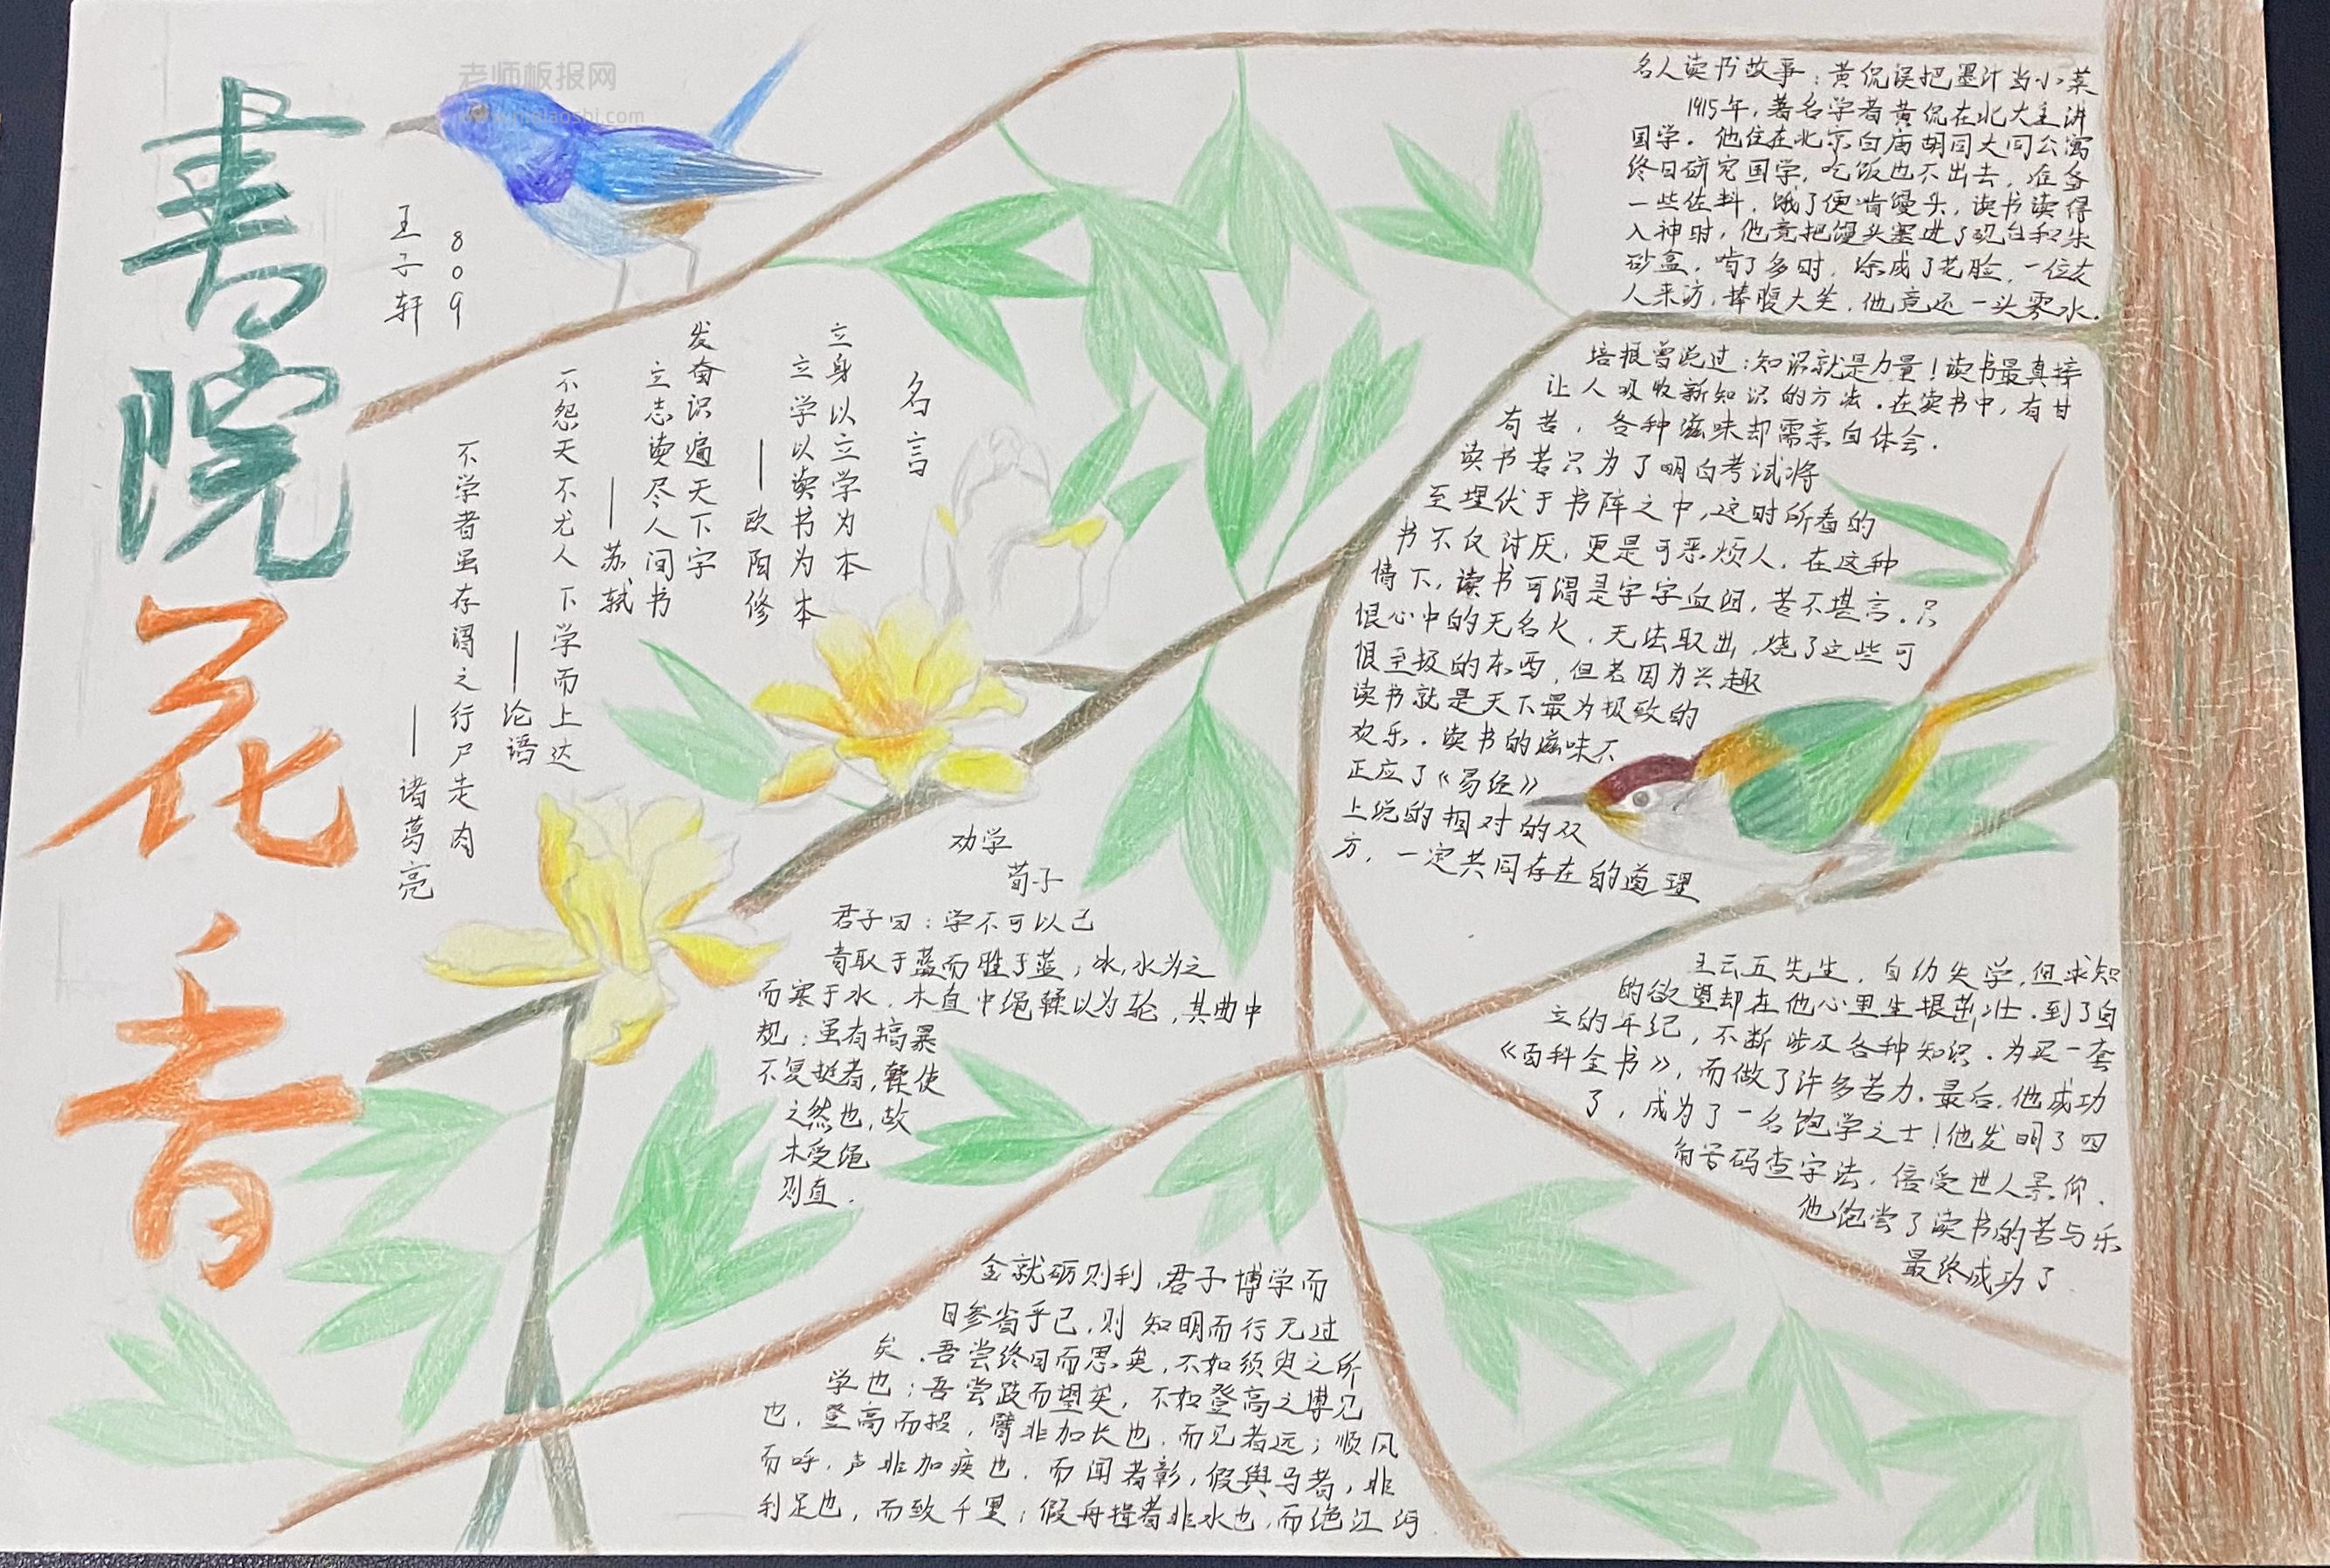 書院花香
老师板报网
www.nielaoshi.com
809
王子轩
名言
立身以立学为本
立学以读书为本
——欧阳修
发奋识遍天下字
立志读尽人间书
——苏轼
不怨天不尤人 下学而上达
——论语
不学者虽存谓之行尸走肉
——诸葛亮
劝学
荀子
君子曰：学不可以已
青取于蓝而胜于蓝；冰，水为之
而寒于水．木直中绳輮以为轮，其曲中
规；虽有搞暴
不复挺者，輮使
之然也，故
木受绳
则直．
金就砺则利，君子博学而
日参省乎己，则 知明而行无过
矣．吾尝终日而思矣，不如须臾之所
学也；吾尝跂而望矣，不如登高之博见
也．登高而招，臂非加长也，而见者远；顺风
而呼，声非加疾也，而闻者彰，假舆马者，非
利足也，而致千里；假舟楫者非水也，而绝江河
名人读书故事：黄侃误把墨汁当小菜
1915年，著名学者黄侃在北大主讲
国学．他住在北京白庙胡同大同公寓
终日研究国学，吃饭也不出去，准备
一些佐料，饿了便啃馒头，读书读得
入神时，他竟把馒头塞进了砚台和朱
砂盒，啃了多时，涂成了花脸，一位友
人来访，捧腹大笑，他竟还一头雾水．
培根曾说过：知识就是力量！读书最直接
让人吸收新知识的方法．在读书中，有甘
有苦，各种滋味却需亲自体会．
读书若只为了明白考试将
至埋伏于书阵之中，这时所看的
书不仅讨厌，更是可恶烦人．在这种
情下，读书可谓是字字血泪，苦不堪言．只
恨心中的无名火，无法取出，烧了这些可
恨至极的东西，但若因为兴趣
读书就是天下最为极致的
欢乐．读书的滋味不
正应了《易经》
上说的相对的双
方，一定共同存在的道理
王云五先生，自幼失学，但求知
的欲望却在他心里生根茁壮．到了自
立的年纪，不断涉及各种知识．为买一套
《百科全书》，而做了许多苦力．最后，他成功
了，成为了一名饱学之士！他发明了四
角号码查字法，倍受世人景仰．
他饱尝了读书的苦与乐
最终成功了